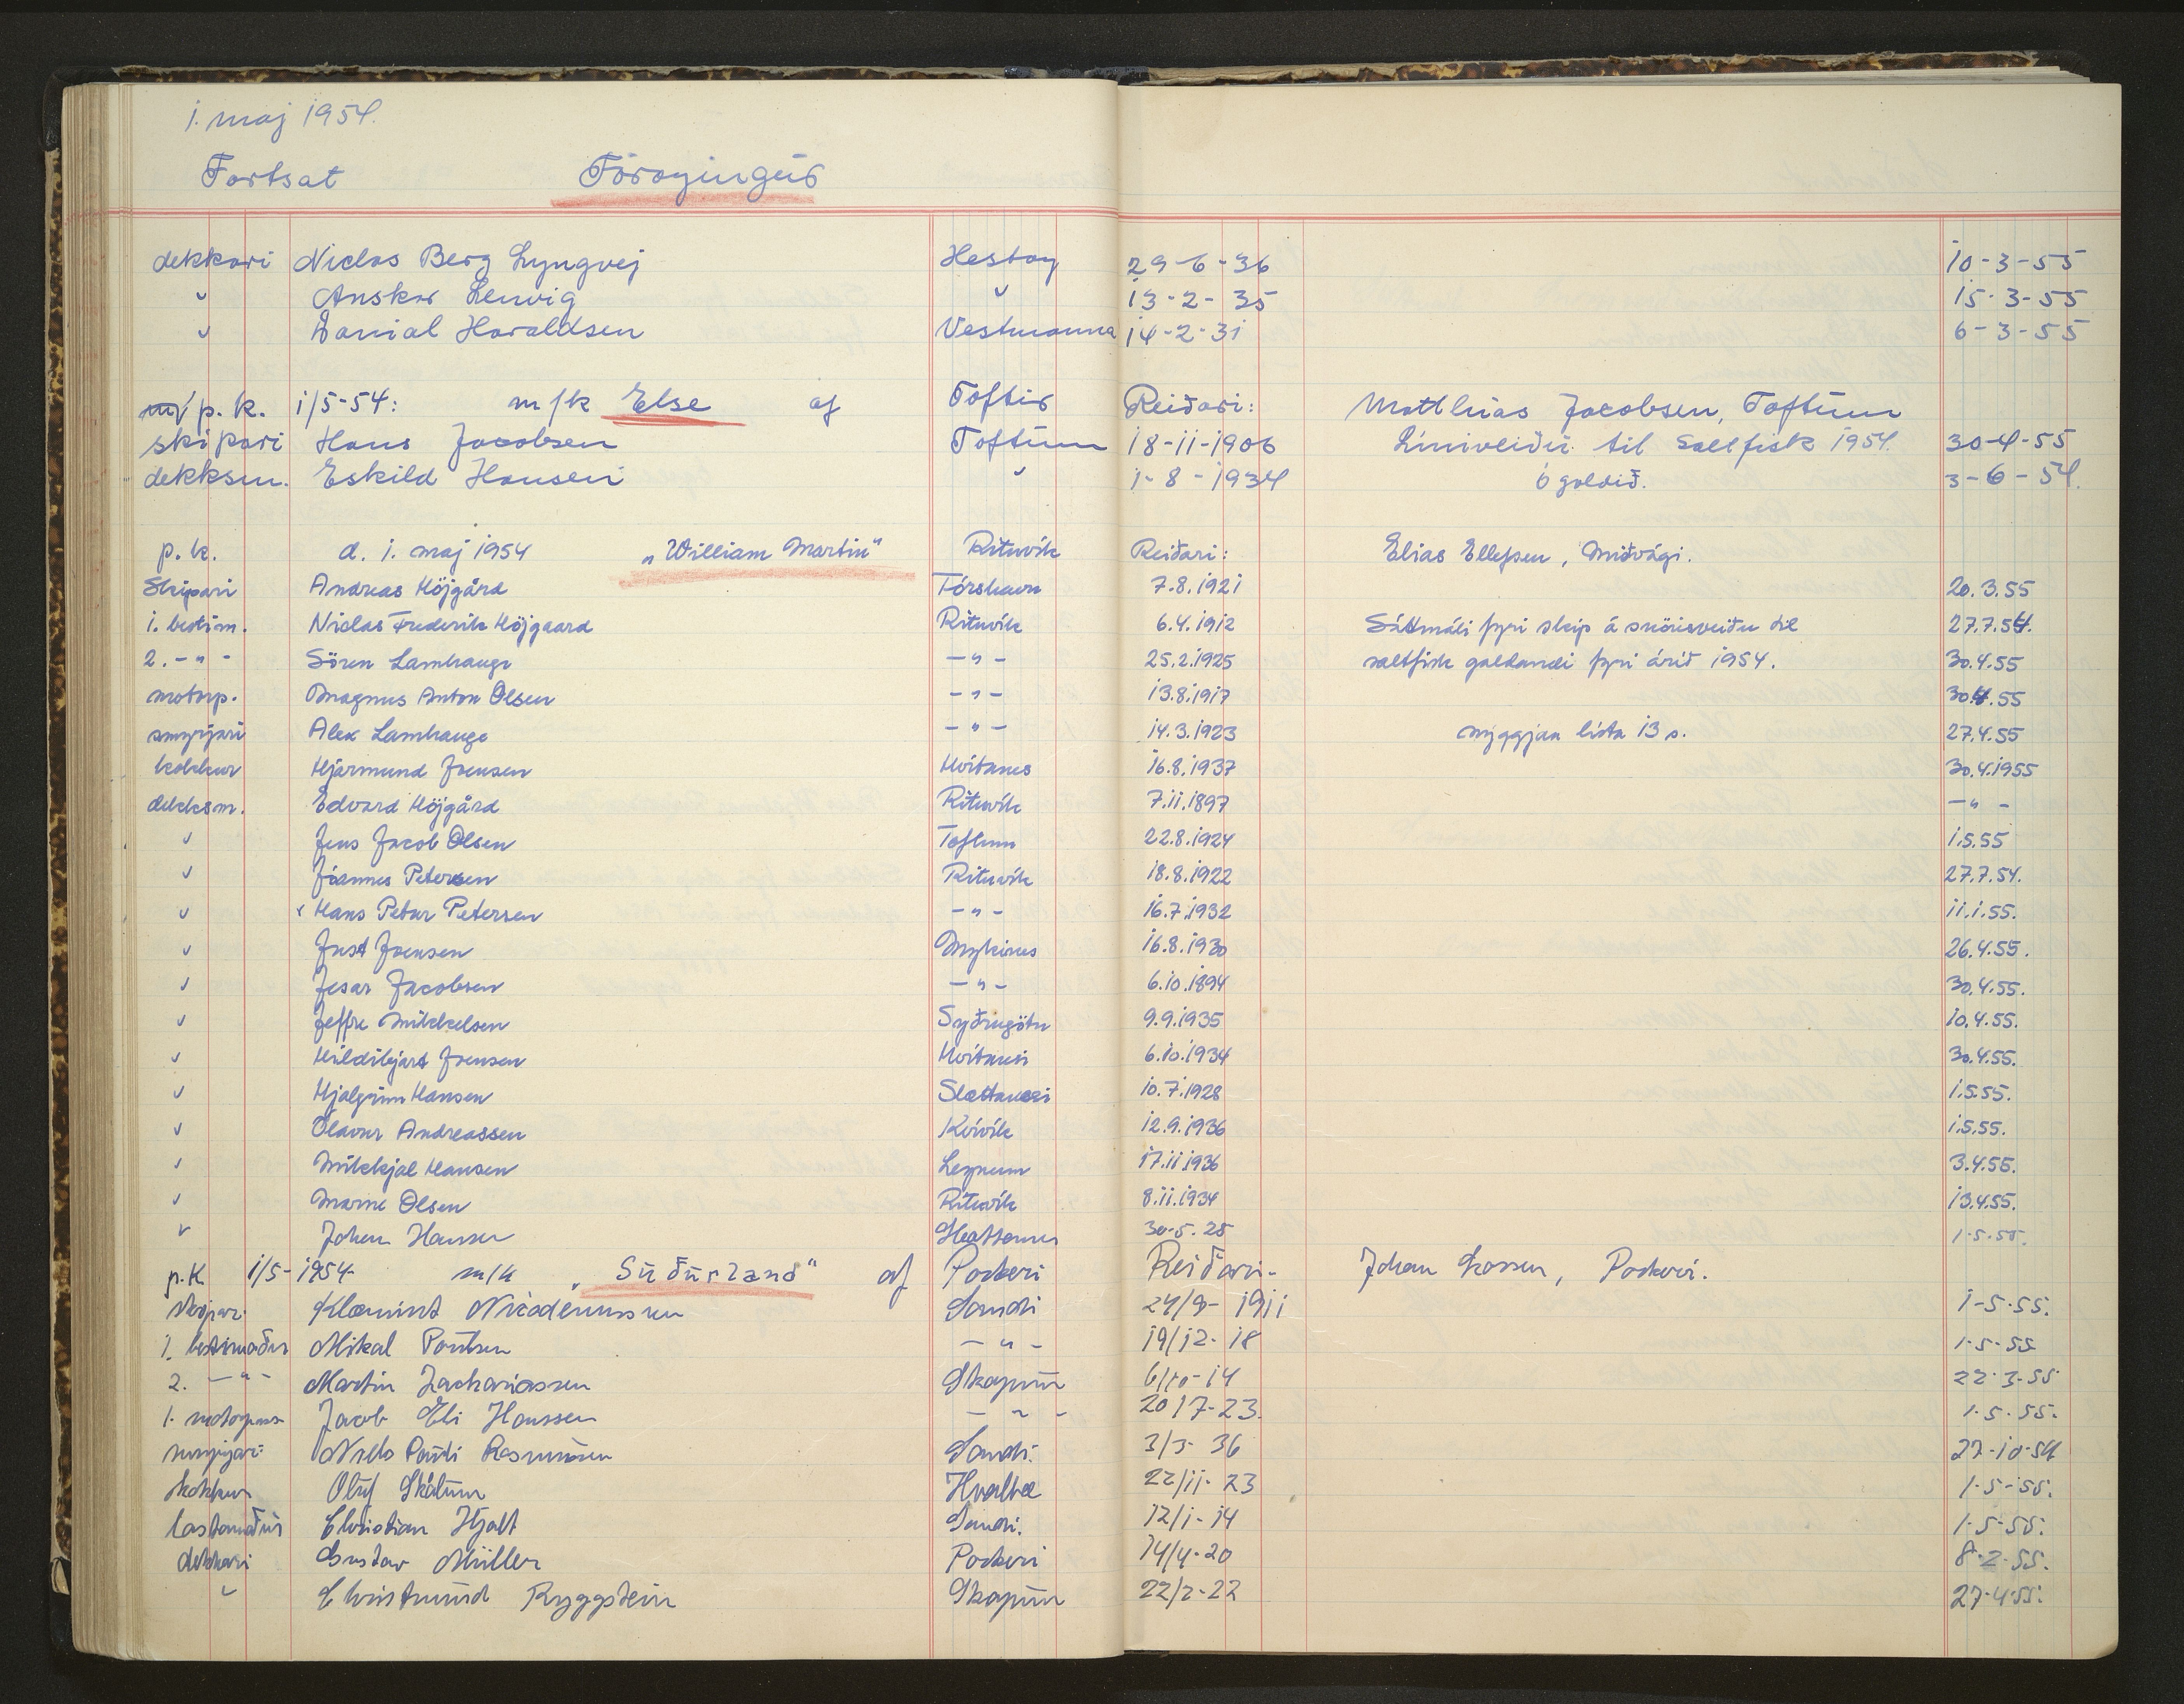 1. maj 1954.
Fortsat Föroyingur
dekkari Niclas Berg Lyngvej Hestoy 29-6-36 10-3-55
" Anskar Lenvig " 13-2-35 15-3-55
" Danial Haraldsen Vestmanna 14-2-31 6-3-55
p.k. 1/5-54: m/k Else af Toftir Reiðari: Matthias Jacobsen, Toftum
skipari Hans Jacobsen Toftum 18-11-1906 Línuveiðu til saltfisk 1954. 30-4-55
dekksm. Eskild Hansen " 1-8-1934 ógoldið. 3-6-54.
p.k. d. 1. maj 1954 „William Martin" Rituvík Reiðari: Elias Ellefsen, Miðvági.
Skipari Andreas Höjgård Tórshavn 7.8.1921 20.3.55
1. bestim. Niclas Frederik Höjgaard Rituvík 6.4.1912 Sáttmáli fyri skip á snörisveiðu til 27.7.54.
2. -"- Sören Lamhauge -"- 25.2.1925 saltfisk galdandi fyri árið 1954. 30.4.55
motorp. Magnus Anton Olsen -"- 13.8.1917 30.4.55
smyrjari Alex Lamhauge -"- 14.3.1923 nýggjan lista 13 s. 27.4.55
kokkur Hjarmund Joensen Hvítanes 16.8.1937 30.4.1955
dekksm. Edvard Höjgård Rituvík 7.11.1897 -"-
" Jens Jacob Olsen Toftum 22.8.1924 1.5.55
" Jóannes Petersen Rituvík 18.8.1922 27.7.54.
" Hans Petur Petersen -"- 16.7.1932 11.1.55.
" Just Joensen Mykines 16.8.1930 26.4.55.
" Jesar Jacobsen -"- 6.10.1894 30.4.55.
" Jeffre Mikkelsen Syðrugötu 9.9.1935 10.4.55.
" Hildibjart Joensen Hvítanes 6.10.1934 30.4.55.
" Hjalgrim Hansen Slættanesi 10.7.1928 1.5.55.
" Ólavur Andreassen Kvívík 12.9.1936 1.5.55.
" Mikkjal Hansen Leynum 17.11.1936 3.4.55.
" Marni Olsen Rituvík 8.11.1934 13.4.55.
" Johan Hansen 30-5.28 1-5-55.
p.k 1/5-1954 m/k „Suðurland" af Porkeri Reiðari- Johan Larsen, Porkeri.
skipari Klæmint Nicodemussen Sandi 24/9-1911 1-5-55.
1. bestimaður Mikal Poulsen -"- 19/12-18 1-5-55
2. -"- Martin Zachariassen Skopun 6/10-14 22-3-55
1. motorpass Jacob Eli Hanssen -"- 20/7-23. 1-5-55.
smyrjari Niels Pauli Rasmussen Sandi. 3/3-36 27-10-54
kokkur Oluf Skålum Hvalba 22/11-23 1-5-55.
lastamaður Christian Hjalt Sandi. 12/1-14 1-5-55.
dekkari Gustav Müller Porkeri 14/4-20 8-2-55.
" Christmund Ryggstein Skopun 22/2-22 27-4-55.